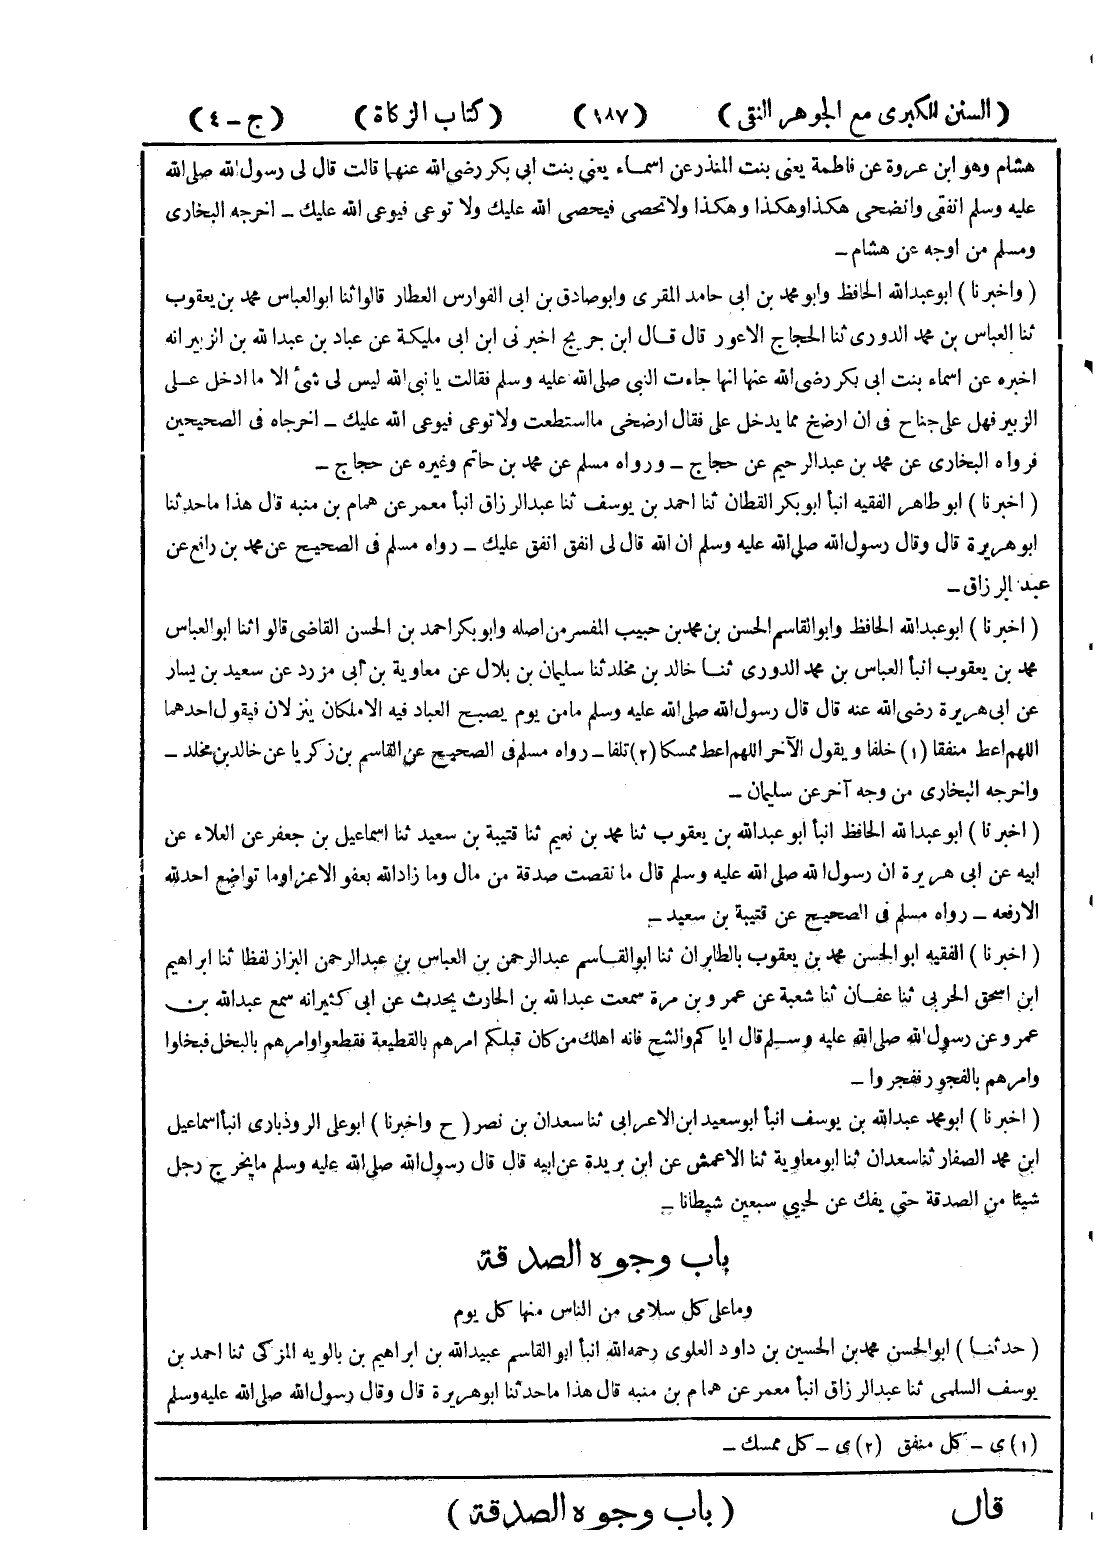 ( السنن الكبرى مع الجوهر النقى ) ( ١٨٧ ) ( كتاب الزكاة ) ( ج - ٤ )
هشام وهو ابن عروة عن فاطمة يعنى بنت المنذر عن اسماء يعني بنت ابى بكر رضى الله عنهما قالت قال لى رسول الله صلى الله
عليه وسلم انفقى وانضحى هكذا وهكذا وهكذا ولاتحصى فيحصى الله عليك ولا توعى فيوعى الله عليك - اخرجه البخارى
ومسلم من اوجه عن هشام -
( واخبرنا ) ابو عبدالله الحافظ وابو محمد بن ابى حامد المقرى وابوصادق بن ابى الفوارس العطار قالوا ثنا ابوالعباس محمد بن يعقوب
ثنا العباس بن محمد الدورى ثنا الحجاج الاعور قال قال ابن جريج اخبرنى ابن ابى مليكة عن عباد بن عبدالله بن الزبير انه
اخبره عن اسماء بنت ابى بكر رضى الله عنها انها جاءت النبى صلى الله عليه وسلم فقالت يا نبى الله ليس لى شئ الا ما ادخل على
الزبير فهل على جناح فى ان ارضخ مما يدخل على فقال ارضخى مااستطعت ولا توعى فيوعى الله عليك - اخرجاه فى الصحيحين
فرواه البخارى عن محمد بن عبدالرحيم عن حجاج - ورواه مسلم عن محمد بن حاتم وغيره عن حجاج -
( اخبرنا ) ابو طاهر الفقيه انبأ ابو بكر القطان ثنا احمد بن يوسف ثنا عبدالرزاق انبأ معمر عن همام بن منبه قال هذا ماحدثنا
ابو هريرة قال وقال رسول الله صلى الله عليه وسلم ان الله قال لى انفق انفق عليك - رواه مسلم فى الصحيح عن محمد بن رافع عن
عبد الرزاق -
( اخبرنا ) ابوعبدالله الحافظ وابوالقاسم الحسن بن محمد بن حبيب المفسر من اصله وابو بكر احمد بن الحسن القاضى قالوا ثنا ابوالعباس
محمد بن يعقوب انبأ العباس بن محمد الدورى ثنا خالد بن مخلد ثنا سليمان بن بلال عن معاوية بن أبى مزرد عن سعيد بن يسار
عن ابى هريرة رضى الله عنه قال قال رسول الله صلى الله عليه وسلم مامن يوم يصبح العباد فيه الاملكان ينزلان فيقول احدهما
اللهم اعط منفقا (١) خلفا ويقول الآخر اللهم اعط ممسكا (٢) تلفا - رواه مسلم فى الصحيح عن القاسم بن زكريا عن خالد بن مخلد -
واخرجه البخارى من وجه آخر عن سليمان -
( اخبرنا ) ابو عبدالله الحافظ انبأ ابو عبدالله بن يعقوب ثنا محمد بن نعيم ثنا قتيبة بن سعيد ثنا اسماعيل بن جعفر عن العلاء عن
ابيه عن ابى هريرة ان رسول الله صلى الله عليه وسلم قال ما نقصت صدقة من مال وما زادالله بعفو الاعزا وما تواضع احد لله
الارفعه - رواه مسلم فى الصحيح عن قتيبة بن سعيد -
( اخبرنا ) الفقيه ابو الحسن محمد بن يعقوب بالطابران ثنا ابوالقاسم عبدالرحمن بن العباس بن عبدالرحمن البزاز لفظا ثنا ابراهيم
ابن اسحق الحربي ثنا عفان ثنا شعبة عن عمرو بن مرة سمعت عبدالله بن الحارث يحدث عن ابى كثير انه سمع عبدالله بن
عمرو عن رسول الله صلى الله عليه وسلم قال ايا كم والشح فانه اهلك من كان قبلكم امرهم بالقطيعة فقطعوا وامرهم بالبخل فبخلوا
وامرهم بالفجور ففجروا -
( اخبرنا ) ابو محمد عبدالله بن يوسف انبأ ابوسعيد ابن الاعرابى ثنا سعدان بن نصر ( ح واخبرنا ) ابو على الروذبارى انبأ اسماعيل
ابن محمد الصفار ثنا سعدان ثنا ابو معاوية ثنا الاعمش عن ابن بريدة عن ابيه قال قال رسول الله صلى الله عليه وسلم مايخرج رجل
شيئا من الصدقة حتى يفك عن لحيي سبعين شيطانا -
باب وجوه الصدقة
وما على كل سلامى من الناس منها كل يوم
( حدثنا ) ابوالحسن محمد بن الحسين بن داود العلوى رحمه الله انبأ ابو القاسم عبيدالله بن ابراهيم بن بالويه المزكى ثنا احمد بن
يوسف السلمى ثنا عبدالرزاق انبأ معمر عن همام بن منبه قال هذا ماحدثنا ابوهريرة قال وقال رسول الله صلى الله عليه وسلم
(١) ى - كل منفق (٢) ى - كل ممسك -
قال ( باب وجوه الصدقة )